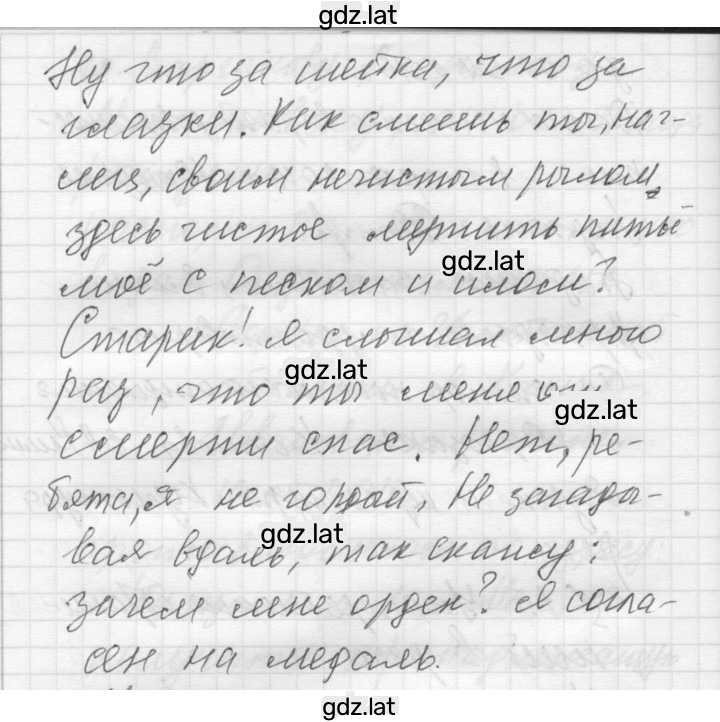 gdz.lat
Ну что за шейка, что за
глазки. Как смеешь ты, наг-
лец, своим нечистым рылом
здесь чистое мутить питьё
gdz.lat
моё с песком и илом?
Старик! Я слышал много
gdz.lat
раз, что ты меня от
gdz.lat
смерти спас. Нет, ре-
бята, я не гордой, Не загады-
gdz.lat
вая вдаль, так скажу:
зачем мне орден? Я согла-
сен на медаль.
gdz.lat